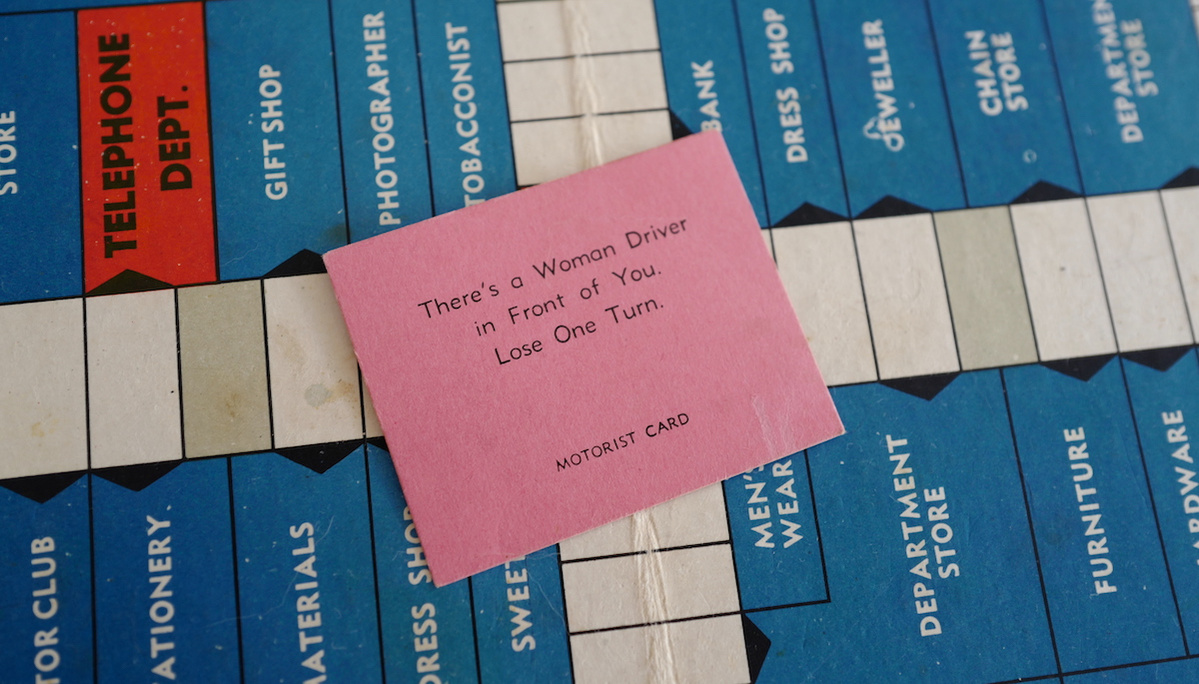 STORE
TELEPHONE
DEPT.
GIFT SHOP
PHOTOGRAPHER
TOBACCONIST
BANK
DRESS SHOP
JEWELLER
CHAIN
STORE
DEPARTMENT
STORE
There's a Woman Driver
in Front of You.
Lose One Turn.
MOTORIST CARD
TOR CLUB
ATIONERY.
MATERIALS
DRESS SHOP
SWEET
MEN'S
WEAR
DEPARTMENT
STORE
FURNITURE
ARDWARE